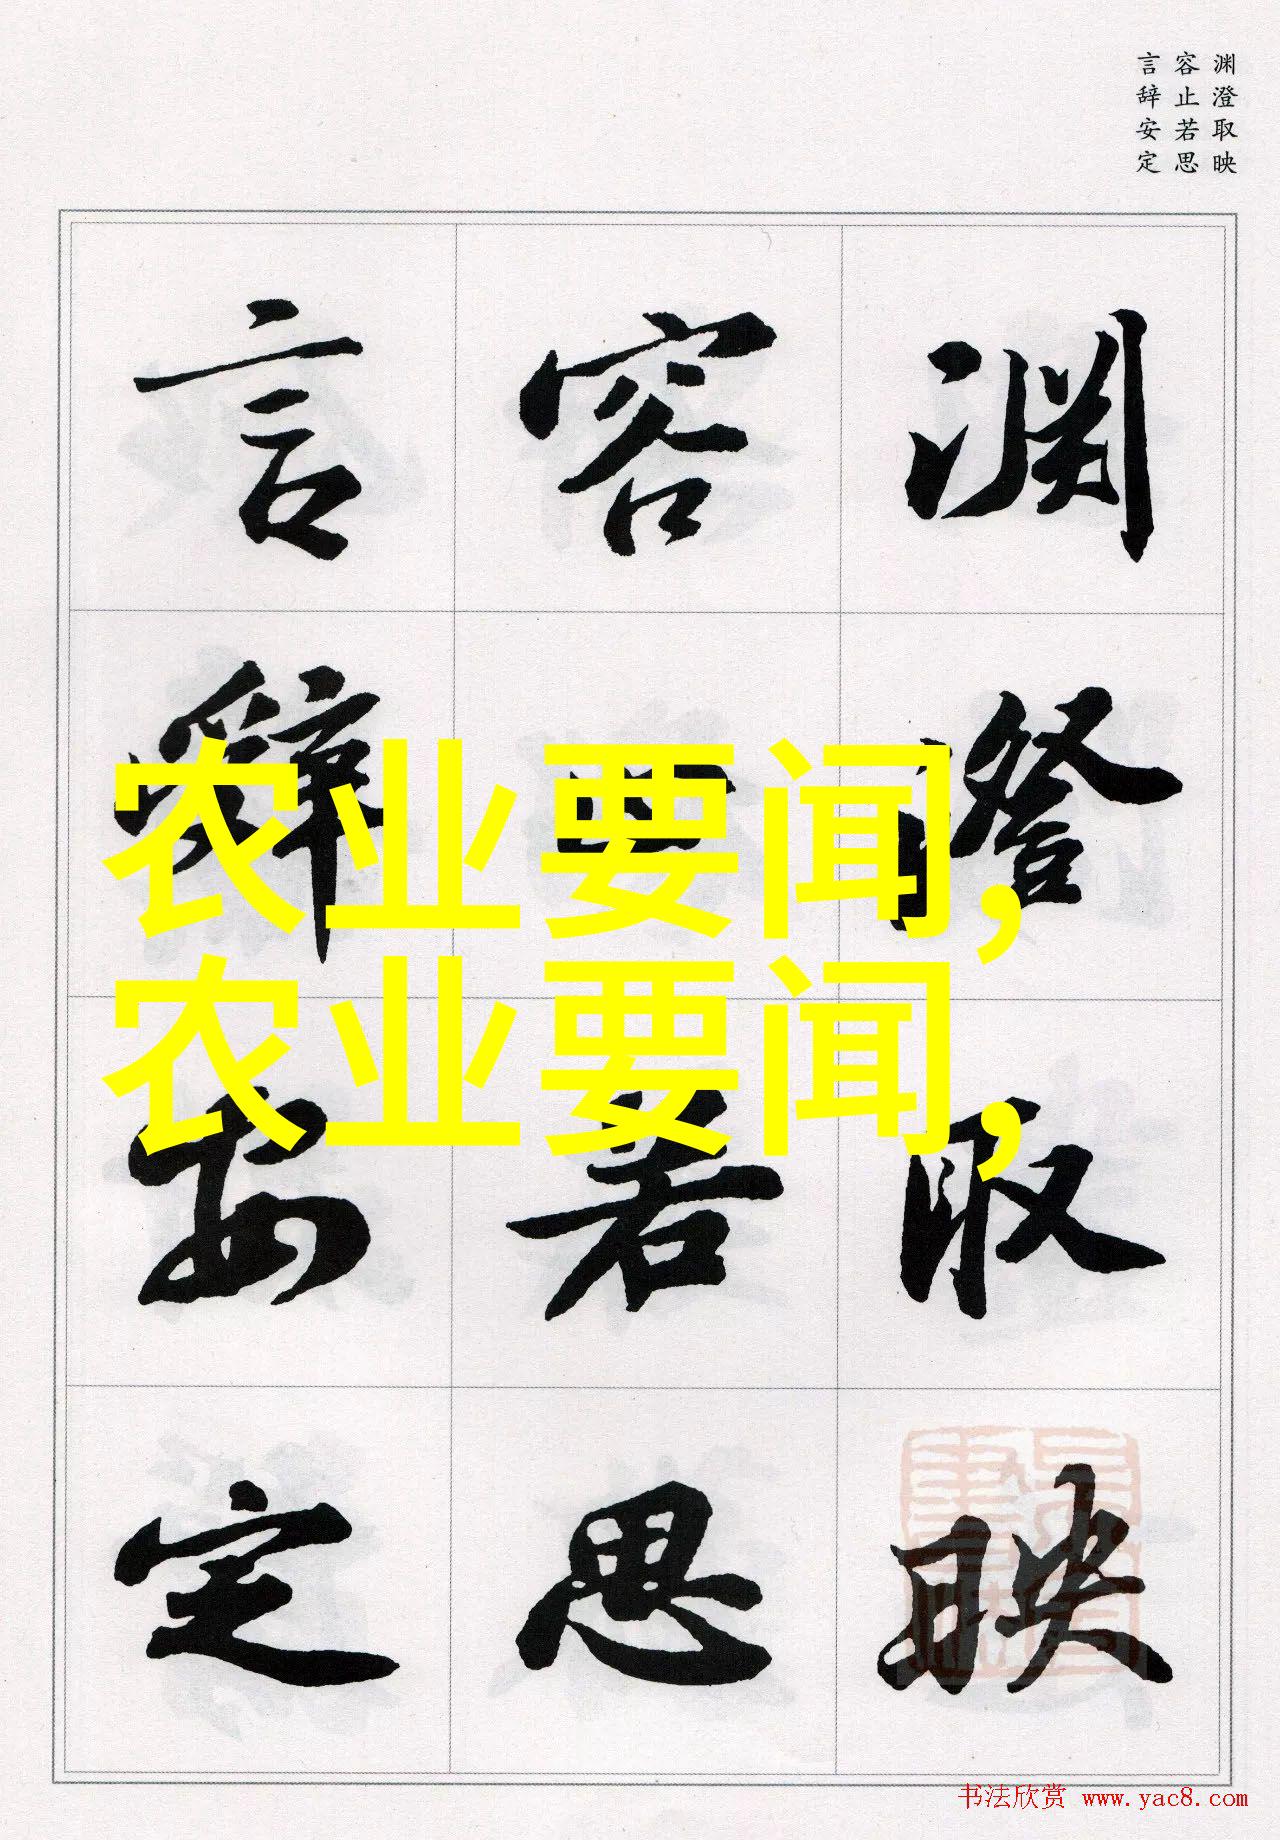 渊澄取映
容止若思
言辞安定
渊澄取映
容止若思
言辞安定
农业要闻,
农业要闻,
书法欣赏 www.yac8.com